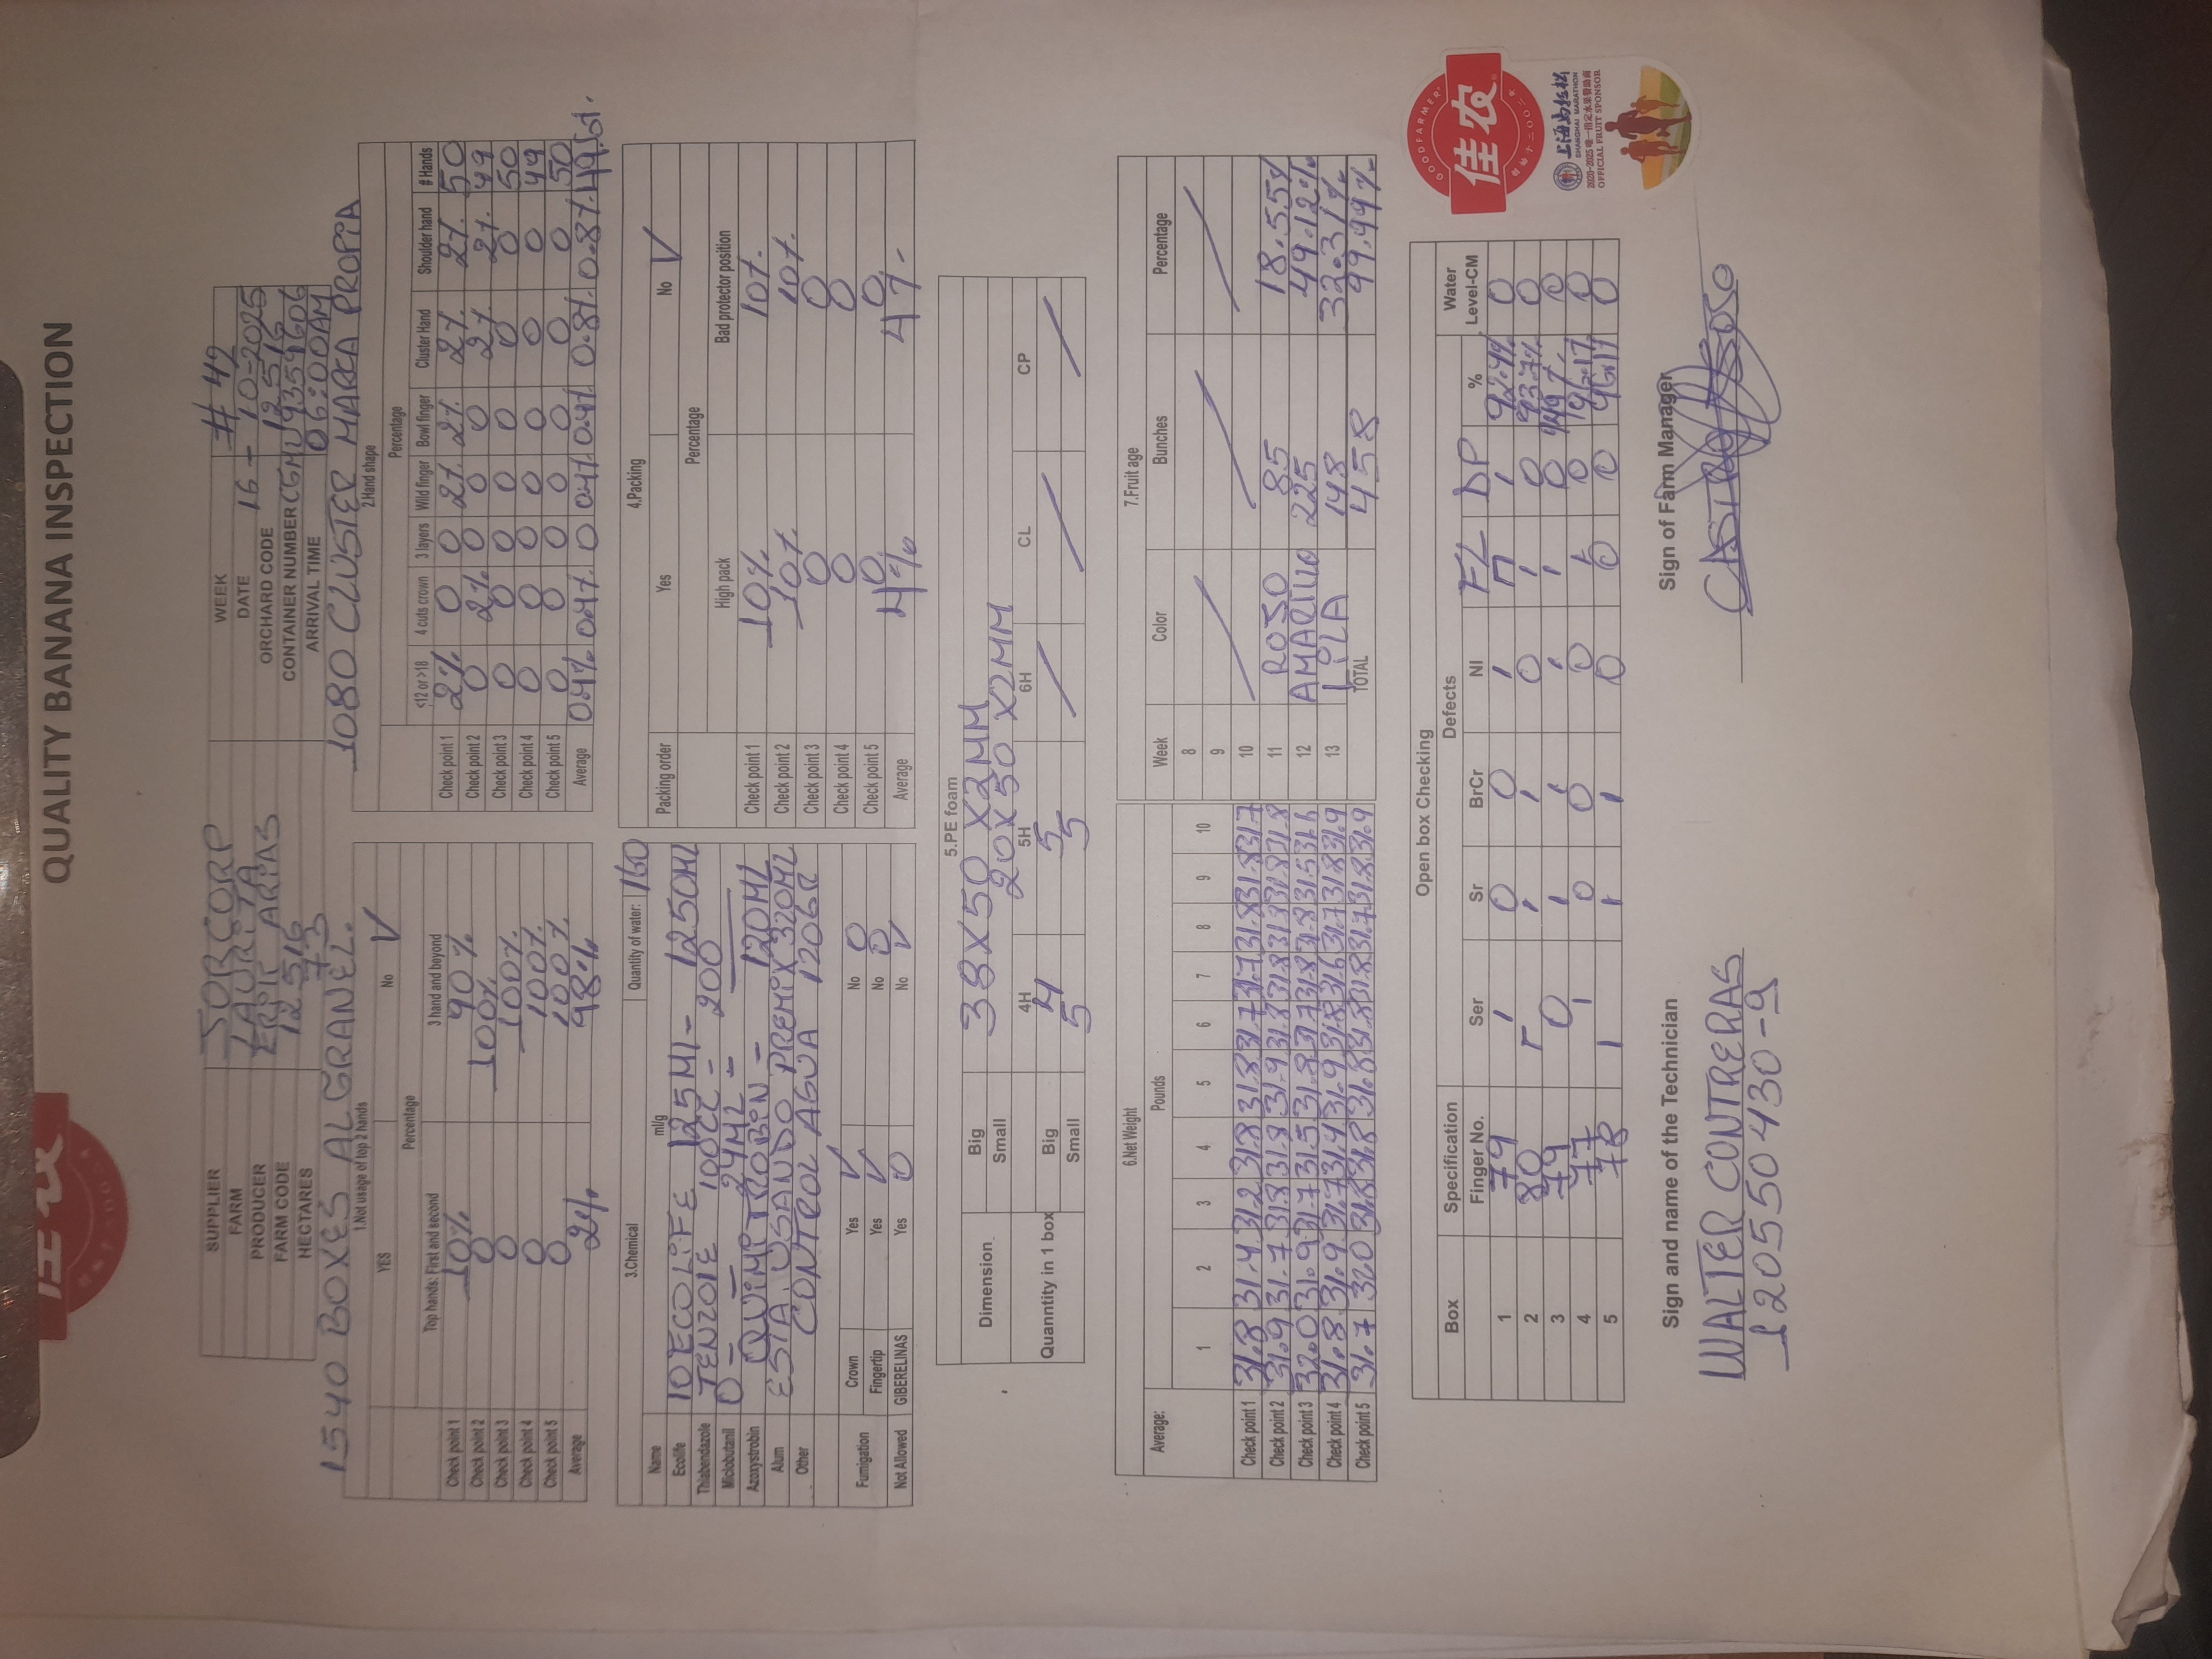 佳农
创始于二〇〇二年
QUALITY BANANA INSPECTION
SUPPLIER JORCORP WEEK # 42
FARM LAURITA DATE 16 - 10-2025
PRODUCER ARIAS ORCHARD CODE 12516
FARM CODE 12516 CONTAINER NUMBER CGMU9359606
HECTARES 73 ARRIVAL TIME 06:00AM
1540 BOXES AL GRANEL. 1080 CLUSTER MARCA PROPIA
1.Not usage of top 2 hands
YES No ✓
Percentage
Top hands: First and second 3 hand and beyond
Check point 1 10% 90%
Check point 2 0 100%
Check point 3 0 100%
Check point 4 0 100%
Check point 5 0 100%
Average 2% 98%
2.Hand shape
Percentage
<12 or >18 4 cuts crown 3 layers Wild finger Bowl finger Cluster Hand Shoulder hand # Hands
Check point 1 2% 0 0 2% 2% 2% 2% 50
Check point 2 0 2% 0 0 0 2% 2% 49
Check point 3 0 0 0 0 0 0 0 50
Check point 4 0 0 0 0 0 0 0 49
Check point 5 0 0 0 0 0 0 0 50
Average 0.4% 0.4% 0 0.4% 0.4% 0.8% 0.8%
3.Chemical Quantity of water: 160
Name ml/g
Ecolife 10 ECOLIFE 125Ml - 1250ML
Thiabendazole 100CC - 200
Miclobutanil 0 - - 24ML -
Azoxystrobin QUIMITROBIN - 120ML
Alum ESTA USANDO PREMIX 320ML
Other CONTROL AGUA 120GR
Fumigation Crown Yes ✓ No 0
Fingertip Yes ✓ No 0
Not Allowed GIBERELINAS Yes 0 No ✓
4.Packing
Packing order Yes No ✓
Percentage
High pack Bad protector position
Check point 1 10% 10%
Check point 2 10% 10%
Check point 3 0 0
Check point 4 0 0
Check point 5 0 0
Average 4% 4%
5.PE foam
Dimension Big 38X50 X2MM
Small 20X50 X2MM
4H 5H 6H CL CP
Quanntity in 1 box Big 4 5
Small 5 5
6.Net Weight
Average: Pounds
1 2 3 4 5 6 7 8 9 10
Check point 1 31.8 31.4 31.2 31.8 31.8 31.7 31.7 31.8 31.8 31.7
Check point 2 31.9 31.7 31.8 31.8 31.9 31.8 31.8 31.8 31.8 31.8
Check point 3 32.0 31.9 31.7 31.5 31.8 31.7 31.8 31.8 31.5 31.6
Check point 4 31.8 31.9 31.7 31.9 31.9 31.8 31.6 31.7 31.8 31.9
Check point 5 31.7 320 31.8 31.8 31.8 31.8 31.8 31.7 31.8 31.9
7.Fruit age
Week Color Bunches Percentage
8
9
10
11 ROJO 85 18.55%
12 AMARILLO 225 49.12%
13 LILA 148 32.31%
TOTAL 458 99.99%
Open box Checking
Box Specification Defects Water
Finger No. Ser Sr BrCr NI FL DP % Level-CM
1 79 1 0 0 1 1 92.4% 0
2 80 1 1 0 1 0 93.7% 0
3 79 0 1 1 1 1 0 0
4 77 1 0 0 0 1 0 96.1% 0
5 78 1 1 1 0 0 0 96.1% 0
GOODFARMER
佳农
创始于二〇〇二年
上海马拉松
SHANGHAI MARATHON
2020-2025 唯一指定水果赞助商
OFFICIAL FRUIT SPONSOR
Sign and name of the Technician Sign of Farm Manager
WALTER CONTRERAS CASTRO
120550430-9